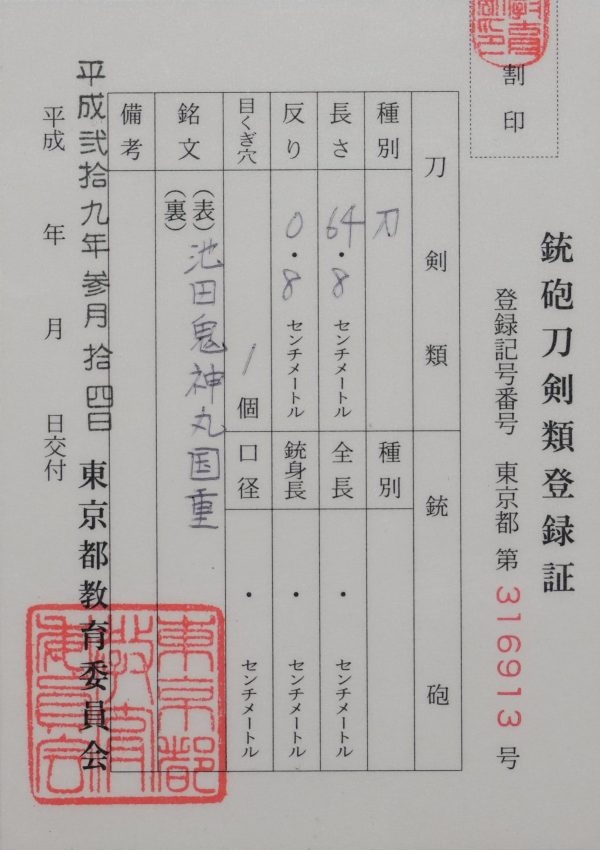 割印
銃砲刀剣類登録証
登録記号番号 東京都 第 316913 号
刀剣類 銃砲
種別 刀 種別
長さ 64・8 センチメートル 全長 ・ センチメートル
反り 0・8 センチメートル 銃身長 ・ センチメートル
目くぎ穴 1 個 口径 ・ センチメートル
銘文 (表) 池田鬼神丸国重
(裏)
備考
平成弐拾九年参月拾四日
平成 年 月 日交付
東京都教育委員会
東京都
教育
委員会